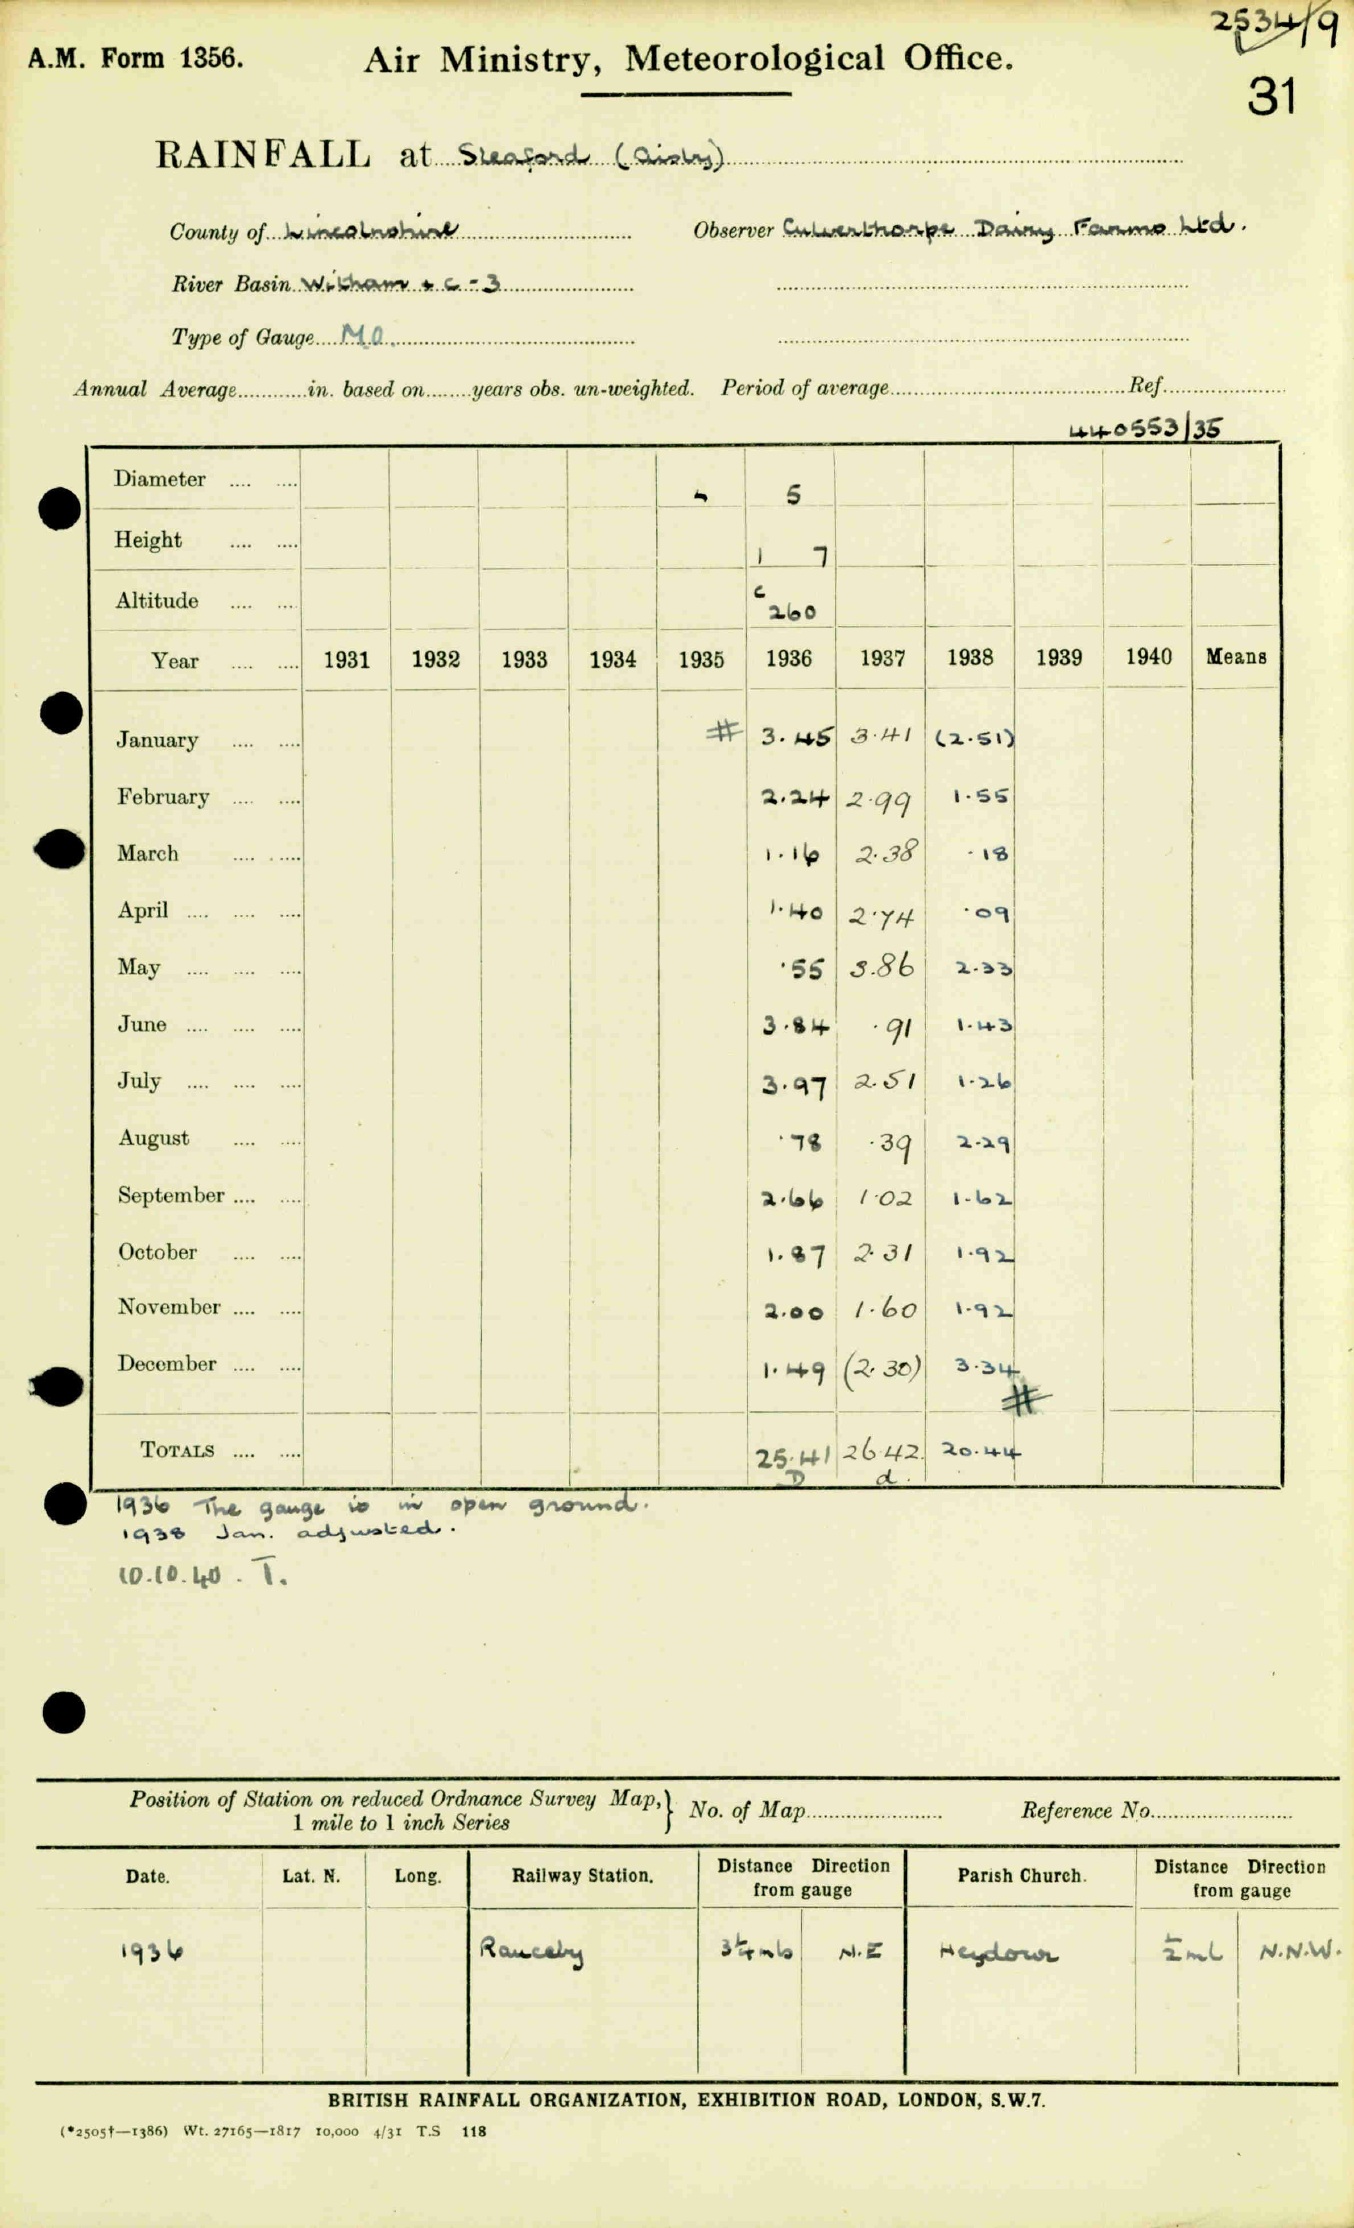 2534/9
A.M. Form 1356. Air Ministry, Meteorological Office.
31
RAINFALL at Sleaford (Aisby)
County of Lincolnshire Observer Culverthorpe Dairy Farms Ltd.
River Basin Witham & c - 3
Type of Gauge M.O.
Annual Average in. based on years obs. un-weighted. Period of average Ref.
440553/35
Diameter 5
Height 1 7
Altitude c 260
Year 1931 1932 1933 1934 1935 1936 1937 1938 1939 1940 Means
January # 3.45 3.41 (2.51)
February 2.24 2.99 1.55
March 1.16 2.38 .18
April 1.40 2.74 .09
May .55 3.86 2.33
June 3.84 .91 1.43
July 3.97 2.51 1.26
August .78 .39 2.29
September 2.66 1.02 1.62
October 1.87 2.31 1.92
November 2.00 1.60 1.92
December 1.49 (2.30) 3.34
#
TOTALS 25.41 26.42 20.44
D d.
1936 The gauge is in open ground.
1938 Jan. adjusted.
10.10.40. T.
Position of Station on reduced Ordnance Survey Map, } No. of Map Reference No.
1 mile to 1 inch Series
Date. Lat. N. Long. Railway Station. Distance Direction from gauge Parish Church. Distance Direction from gauge
1936 Rauceby 3¼ mls N.E Heydour ½ ml N.N.W.
BRITISH RAINFALL ORGANIZATION, EXHIBITION ROAD, LONDON, S.W.7.
(*2505†—1386) Wt. 27165—1817 10,000 4/31 T.S 118